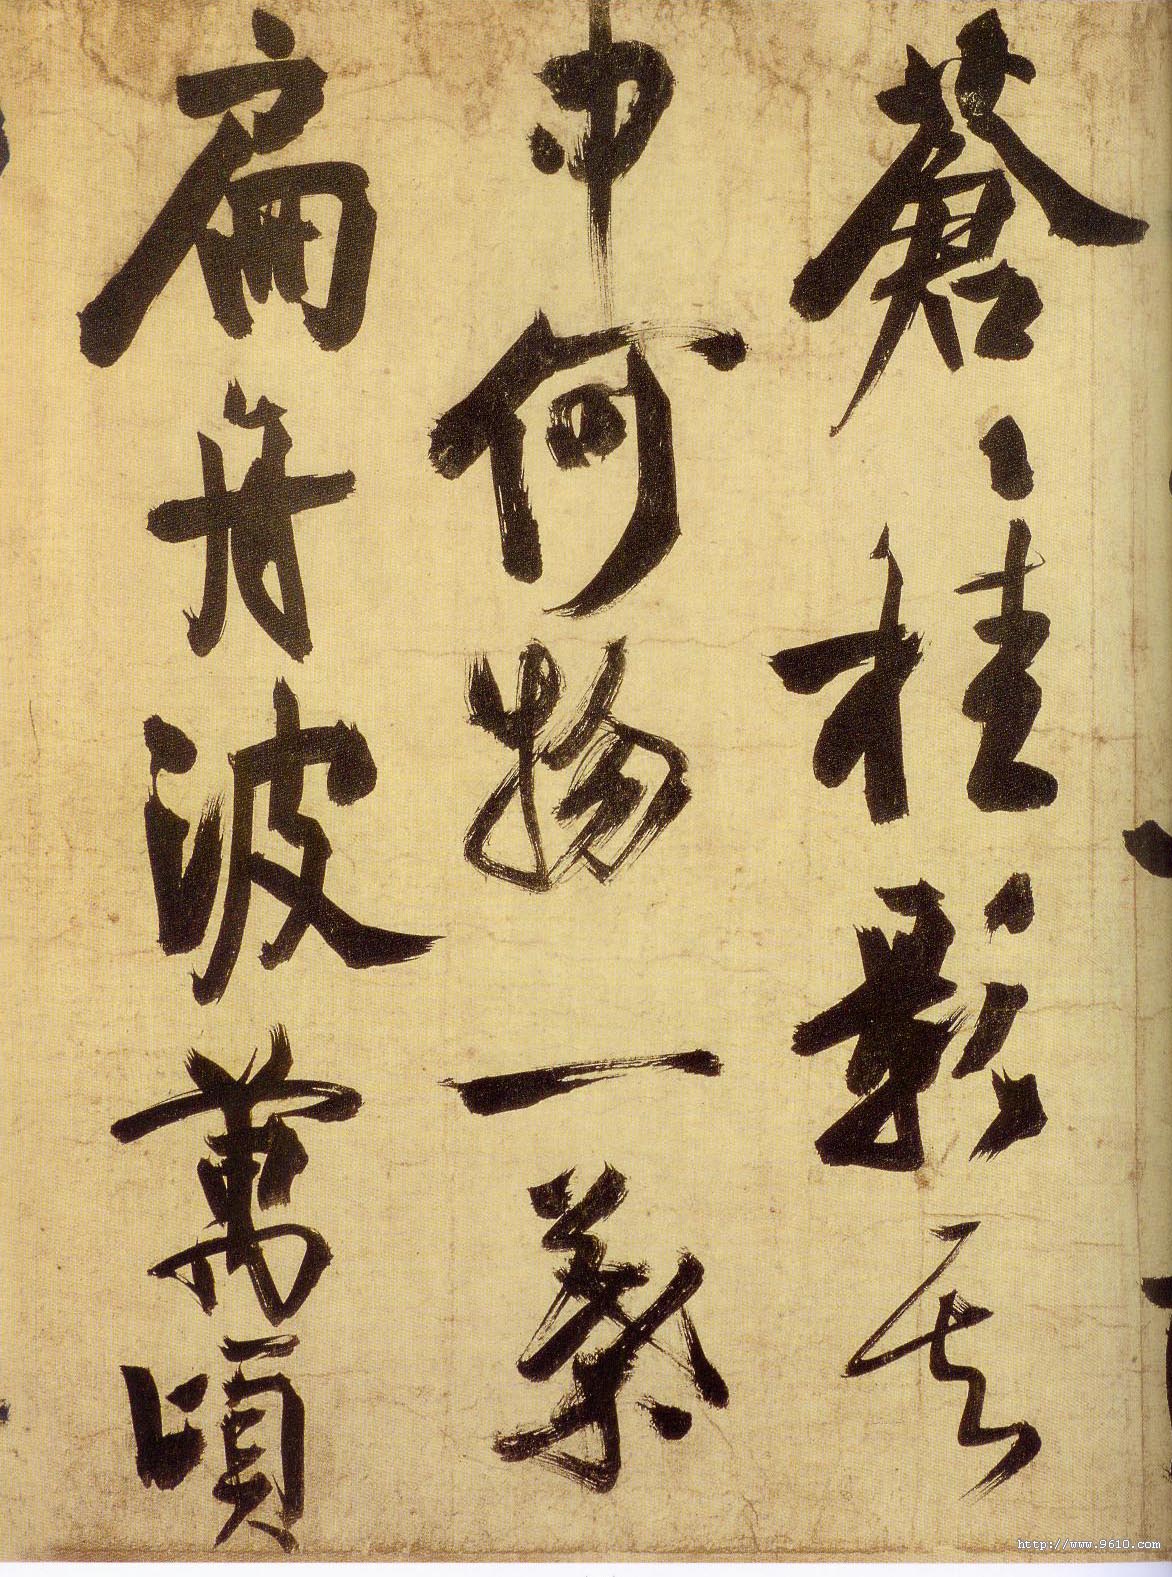 蒼〻桂影其
中何物一葉
扁舟波萬頃
http://www.9610.com